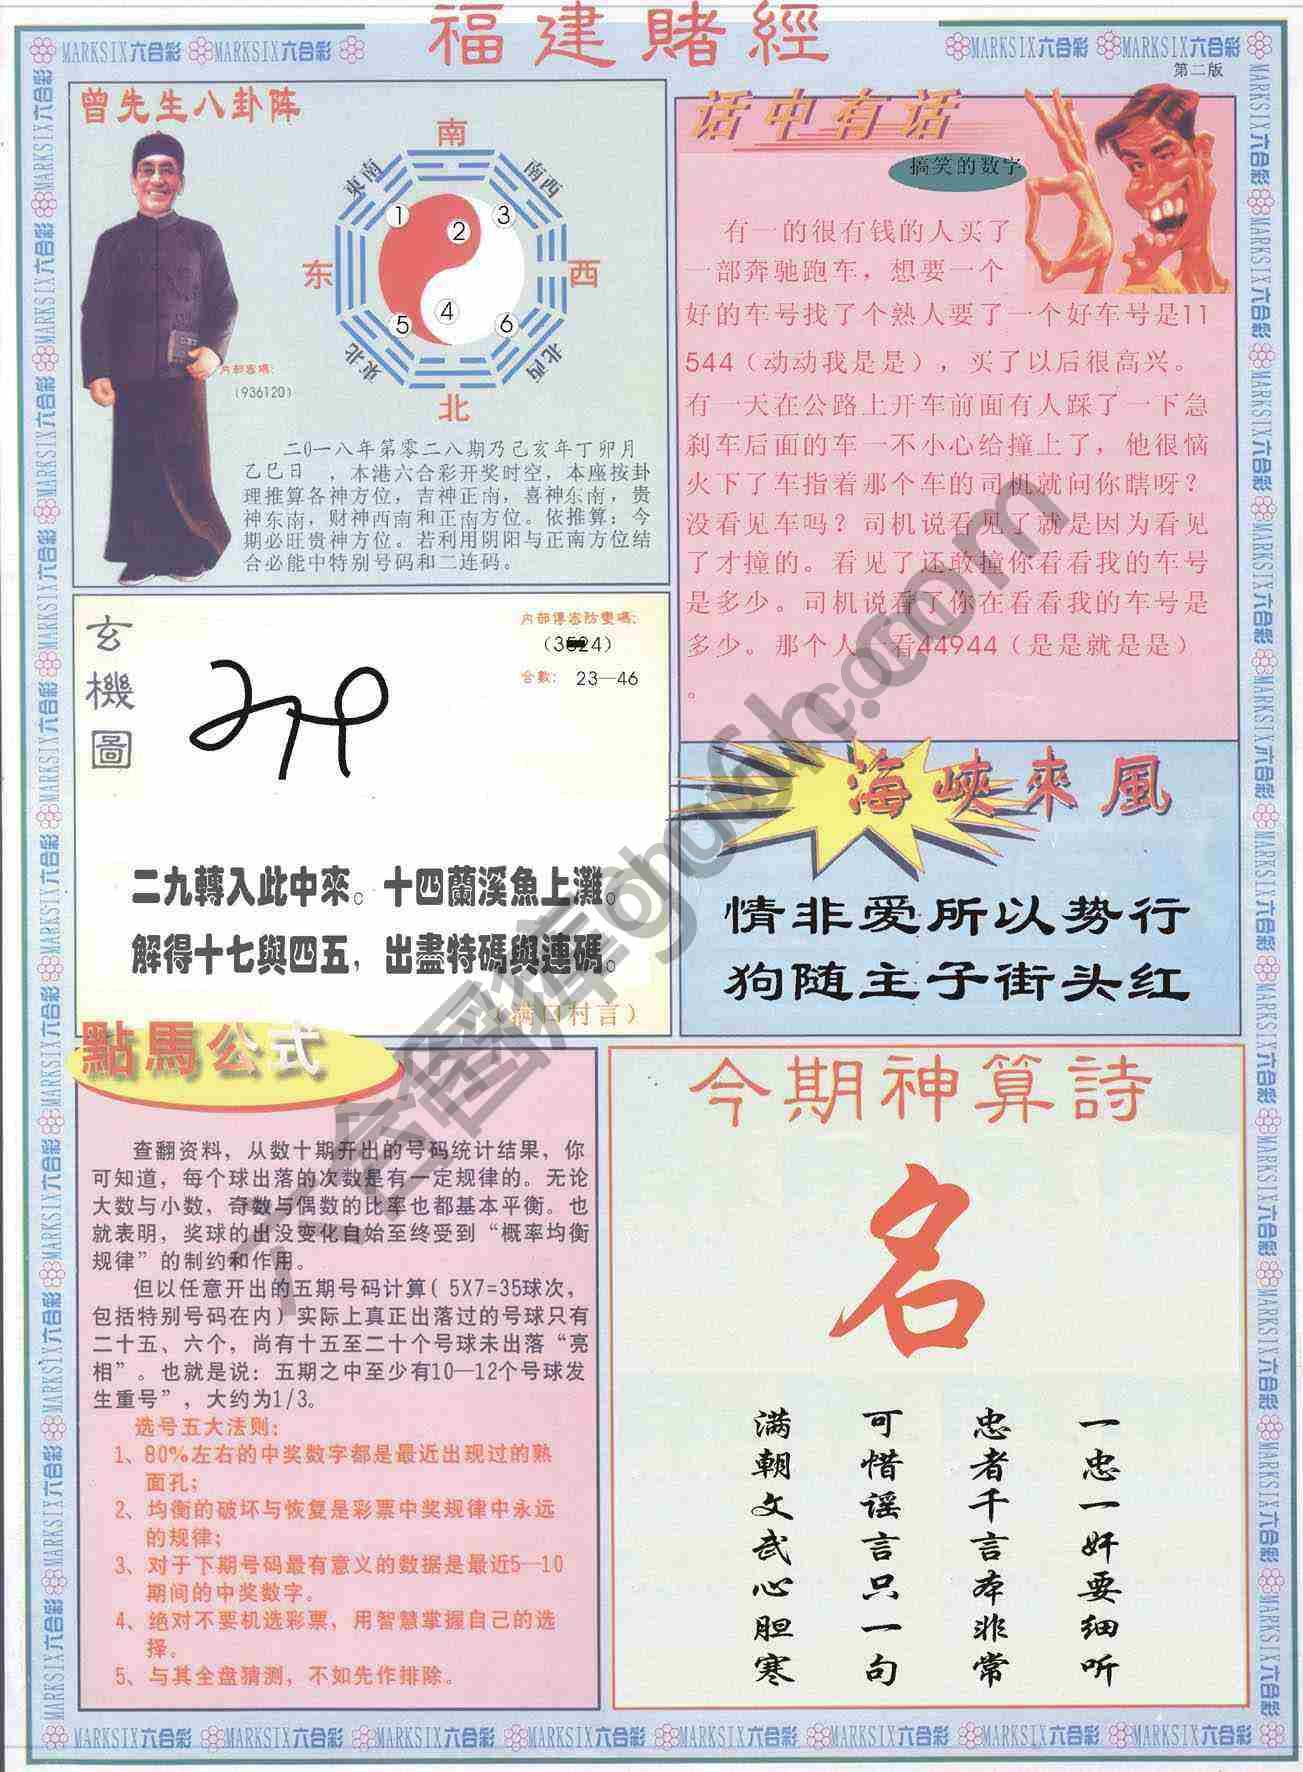 福建賭經
MARKSIX六合彩 MARKSIX六合彩
MARKSIX六合彩 MARKSIX六合彩
第二版
曾先生八卦阵
南
東南
南西
1
2
3
东
西
4
5
6
東北
北西
北
内部密碼：
（936120）
二0一八年第零二八期乃己亥年丁卯月
乙巳日，本港六合彩开奖时空，本座按卦
理推算各神方位，吉神正南，喜神东南，贵
神东南，财神西南和正南方位。依推算：今
期必旺贵神方位。若利用阴阳与正南方位结
合必能中特别号码和二连码。
话中有话
搞笑的数字
有一的很有钱的人买了
一部奔驰跑车，想要一个
好的车号找了个熟人要了一个好车号是11
544（动动我是是），买了以后很高兴。
有一天在公路上开车前面有人踩了一下急
刹车后面的车一不小心给撞上了，他很恼
火下了车指着那个车的司机就问你瞎呀？
没看见车吗？司机说看见了就是因为看见
了才撞的。看见了还敢撞你看看我的车号
是多少。司机说看了你在看看我的车号是
多少。那个人一看44944（是是就是是）
。
玄機圖
内部傳密防變碼：
合數：23—46
二九轉入此中來。十四蘭溪魚上灘。
解得十七與四五，出盡特碼與連碼。
（满口村言）
海峽來風
情非爱所以势行
狗随主子街头红
點馬公式
查翻资料，从数十期开出的号码统计结果，你
可知道，每个球出落的次数是有一定规律的。无论
大数与小数，奇数与偶数的比率也都基本平衡。也
就表明，奖球的出没变化自始至终受到“概率均衡
规律”的制约和作用。
但以任意开出的五期号码计算（5X7=35球次，
包括特别号码在内）实际上真正出落过的号球只有
二十五、六个，尚有十五至二十个号球未出落“亮
相”。也就是说：五期之中至少有10—12个号球发
生重号”，大约为1/3。
选号五大法则：
1、80%左右的中奖数字都是最近出现过的熟
面孔；
2、均衡的破坏与恢复是彩票中奖规律中永远
的规律；
3、对于下期号码最有意义的数据是最近5—10
期间的中奖数字。
4、绝对不要机选彩票，用智慧掌握自己的选
择。
5、与其全盘猜测，不如先作排除。
今期神算詩
名
一忠一奸要细听
忠者千言本非常
可惜谣言只一句
满朝文武心胆寒
MARKSIX六合彩 MARKSIX六合彩 MARKSIX六合彩 MARKSIX六合彩 MARKSIX六合彩 MARKSIX六合彩 MARKSIX六合彩 MARKSIX六合彩